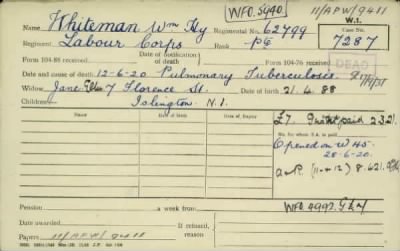 WFO. 5990.
11/APW/9411
W.1.
Name Whiteman Wm Hy Regimental No. 62799 Case No. 7287
Regiment Labour Corps Rank Pte
Date of notification of death
Form 104-88 received Form 104-76 received
DEAD
Date and cause of death 12-6-20 Pulmonary Tuberculosis.
Widow Jane 7 Florence St. Date of birth 21.6.88
Children Islington N.1.
Name Date of Birth Date of Expiry
£7. paid 2.3.21.
No. for whom S.A. is paid
Opened on W 45.
28-6-20.
Pension a week from WFO.
Date awarded If refused, reason
Papers 11/APW/9411